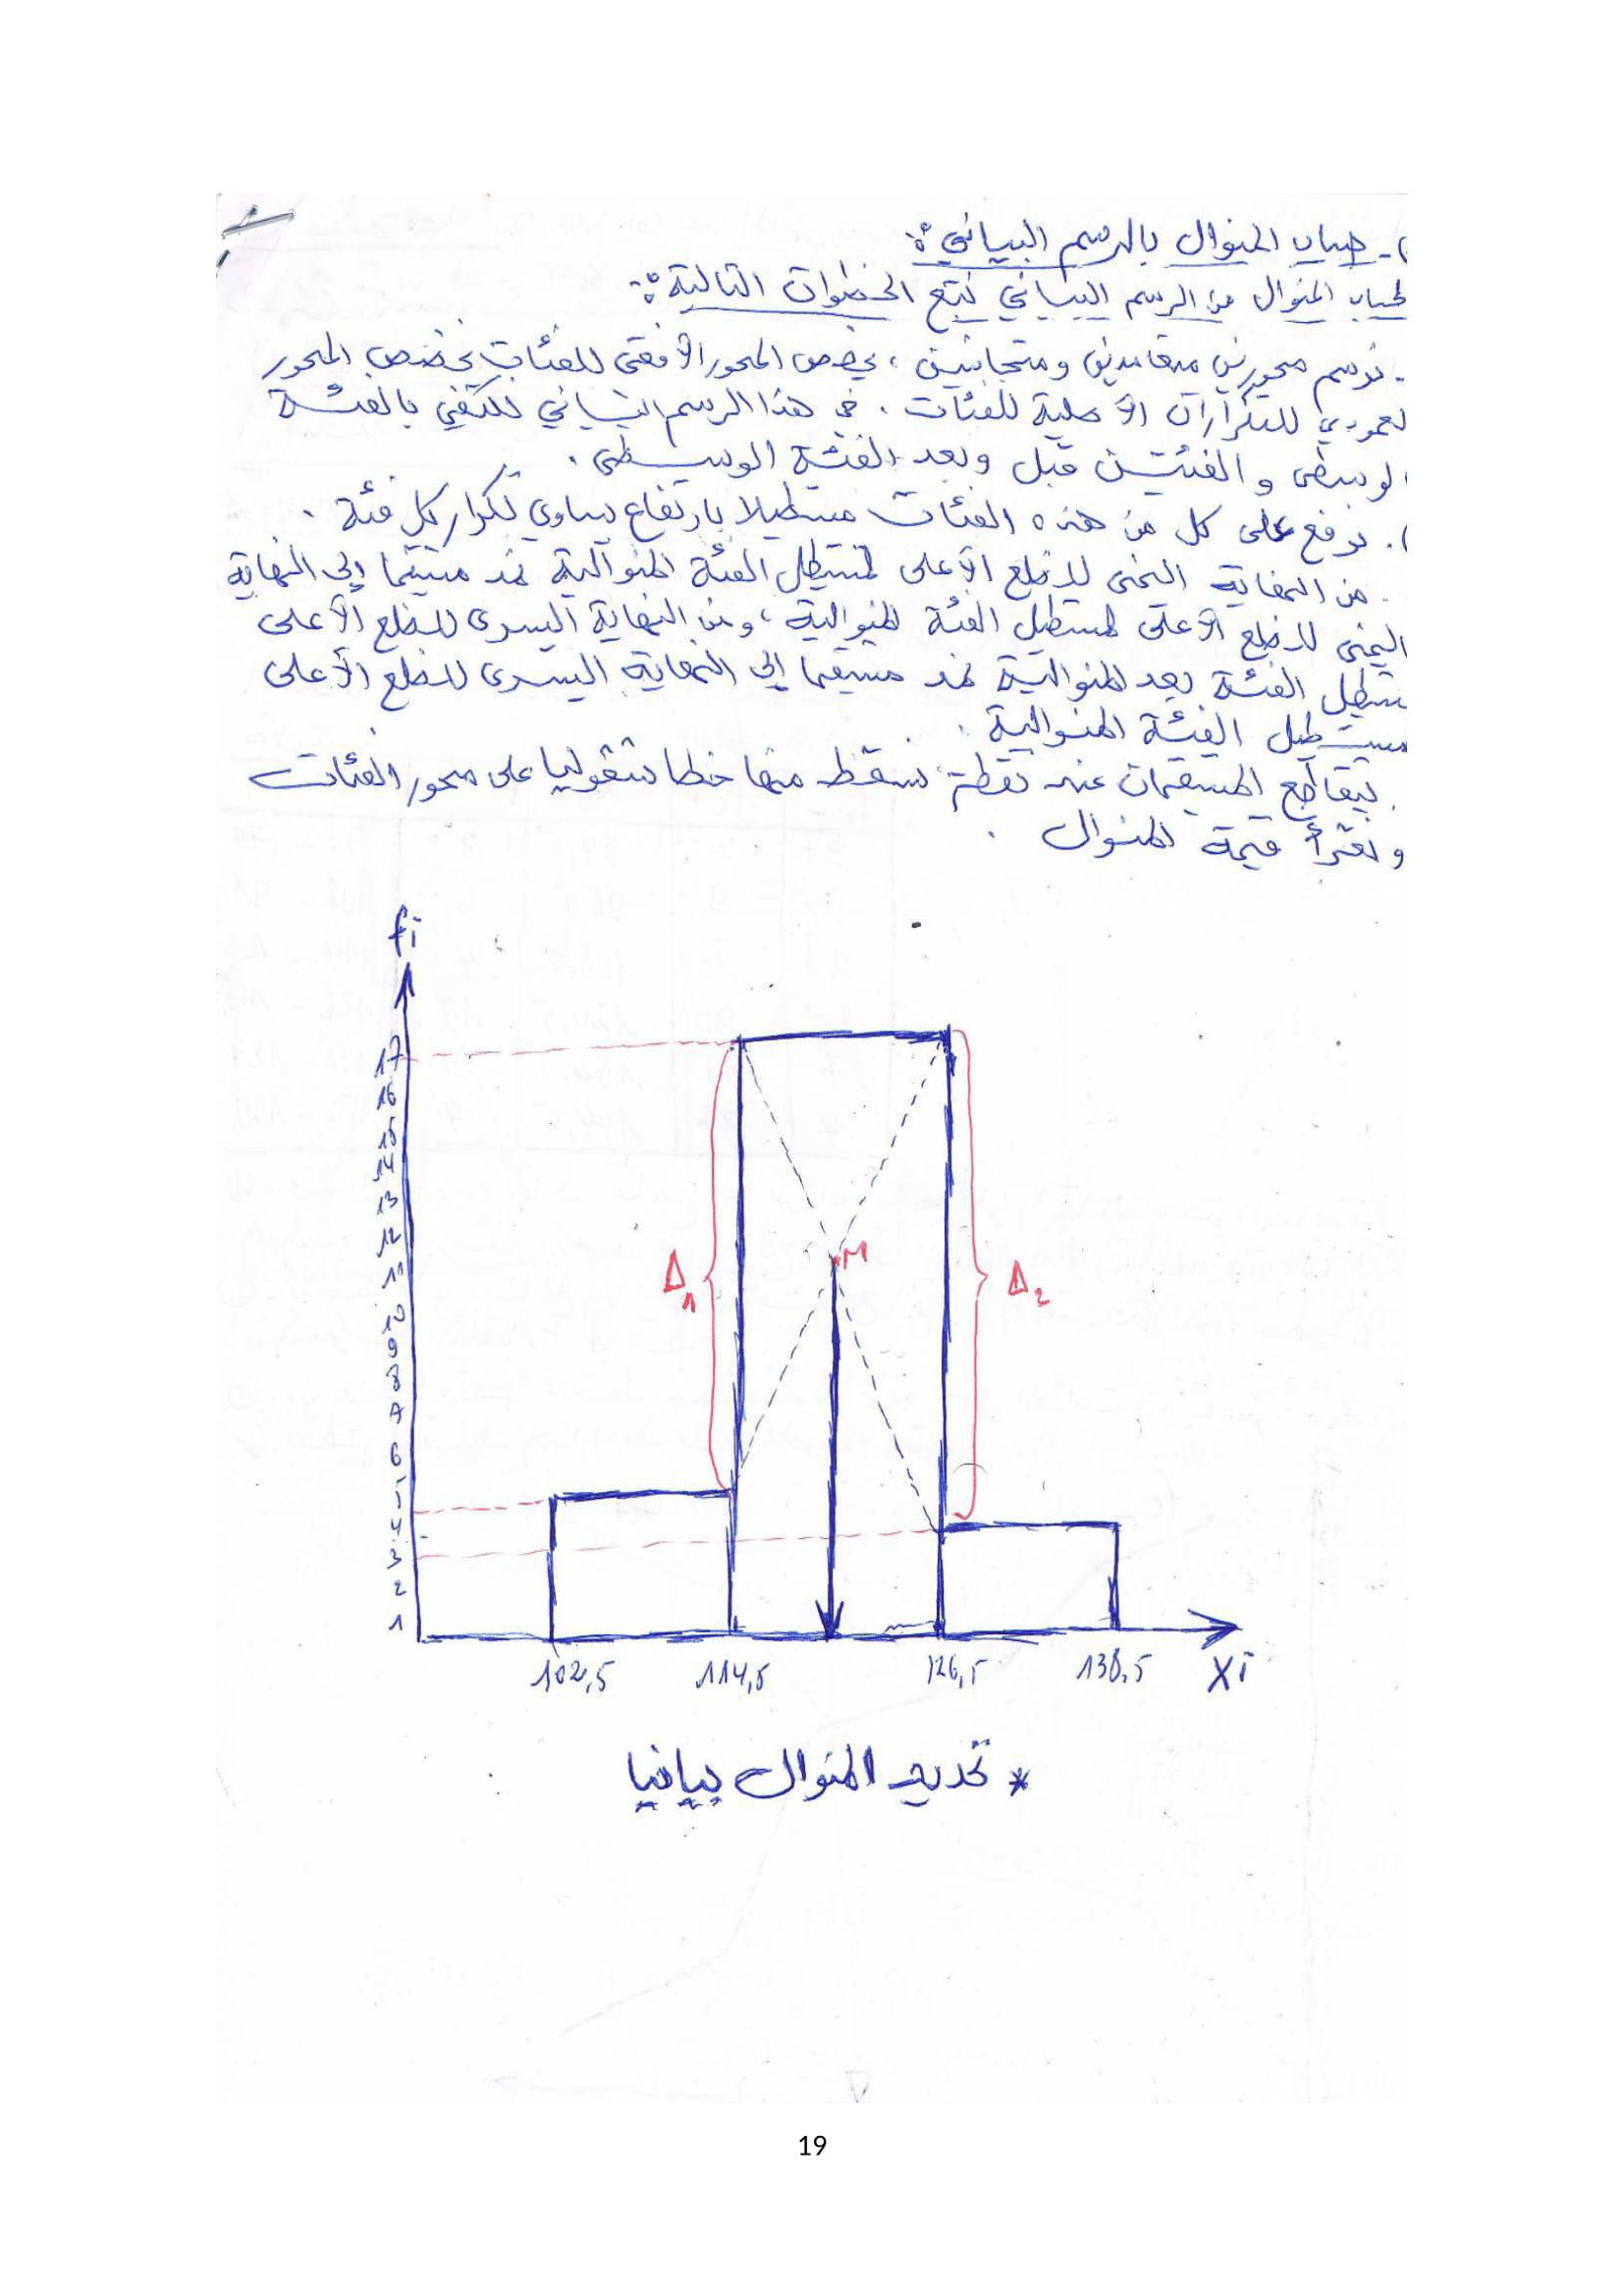 )- حساب المنوال بالرسم البياني:
لحساب المنوال من الرسم البياني نتبع الخطوات التالية:-
- نرسم محورين متعامدين ومتجانسين، يخصص المحور الأفقي للفئات يخصص المحور
لعمودي للتكرارات الأصلية للفئات. في هذا الرسم البياني نكتفي بالفئة
الوسطى والفئتين قبل وبعد الفئة الوسطى.
). نرفع على كل من هذه الفئات مستطيلا بارتفاع يساوي تكرار كل فئة.
. من النهاية اليمنى للضلع الأعلى لمستطيل الفئة المنوالية نمد مستقيما إلى النهاية
اليمنى للضلع الأعلى لمستطيل الفئة المنوالية، ومن النهاية اليسرى للضلع الأعلى
ستطيل الفئة بعد المنوالية نمد مستقيما إلى النهاية اليسرى للضلع الأعلى
مستطيل الفئة المنوالية.
. يتقاطع المستقيمان عند نقطة نسقط منها خطا شاقوليا على محور الفئات
و نقرأ قيمة المنوال.
fi
17
16
15
14
13
12
11
10
9
8
7
6
5
4
3
2
1
Δ1
M
Δ2
102,5
114,5
126,5
138,5
Xi
* تحديد المنوال بيانيا
19